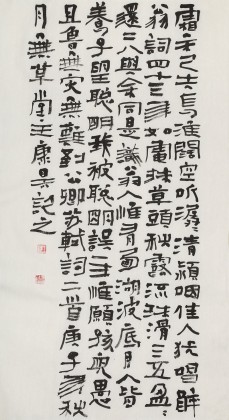 霜余已失長淮闊空听潺〻清潁咽佳人犹唱醉
翁詞四十三年如電抹草頭秋露流珠滑三五盈〻
還二八與余同是識翁人惟有西湖波底月人皆
養子望聪明我被聪明誤一生惟願孩兒愚
且魯無灾無難到公卿苏軾詞二首庚子年秋
月無草堂王康記之